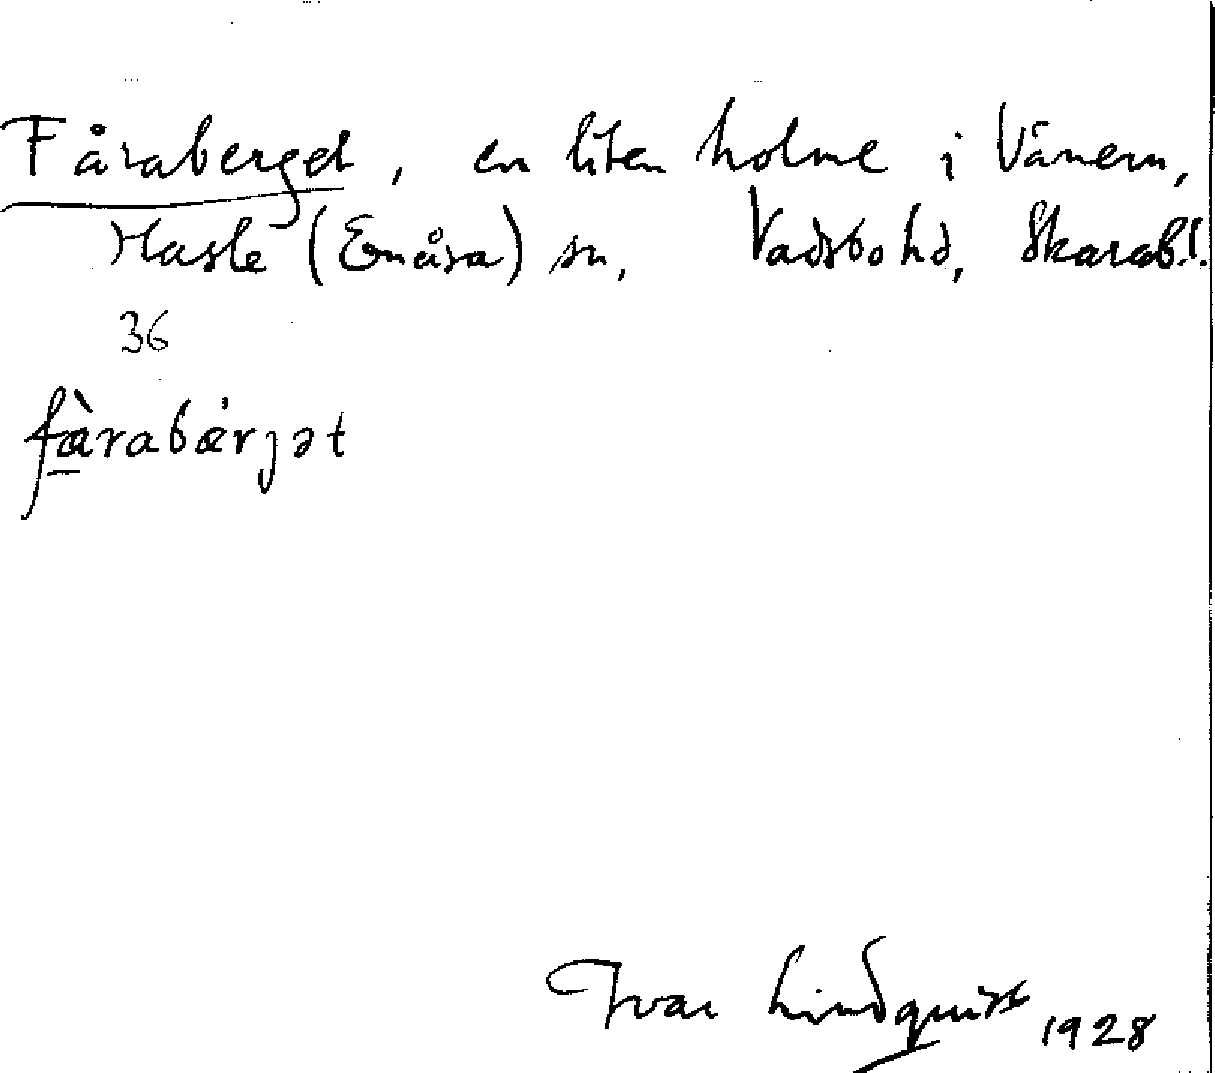 Fåraberget, en liten holme i Vänern,
Hasle (Enåsa) sn, Vadsbo hd, Skarab. l.
36
fàrabǽrjət
Ivar Lindquist 1928